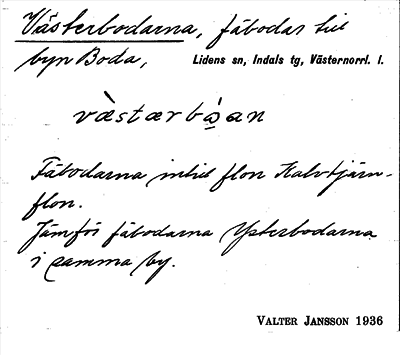 Västerbodarna, fäbodar till
byn Boda, Lidens sn, Indals tg, Västernorrl. l.
Fäbodarna intill flon Kalvtjärn-
flon.
Jämför fäbodarna Ysterbodarna
i samma by.
VALTER JANSSON 1936